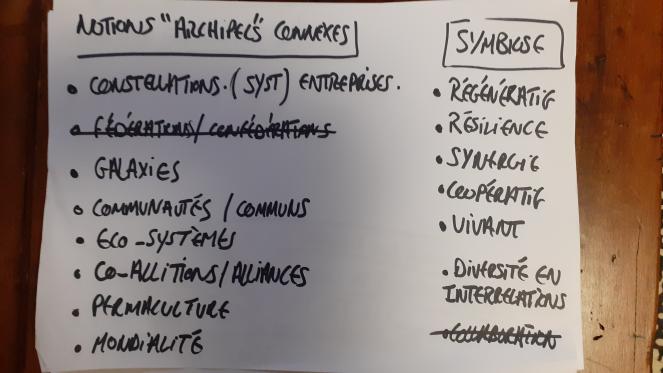 NOTIONS "ARCHIPELS" CONNEXES
• CONSTELLATIONS. (SYST) ENTREPRISES.
• FÉDÉRATIONS/CONFÉDÉRATIONS
• GALAXIES
• COMMUNAUTÉS / COMMUNS
• ECO-SYSTÈMES
• CO-ALLITIONS/ALLIANCES
• PERMACULTURE
• MONDIALITÉ
SYMBIOSE
• RÉGÉNÉRATIF
• RÉSILIENCE
• SYNERGIE
• COOPÉRATIF
• VIVANT
• DIVERSITÉ EN
INTERRELATIONS
• COLLABORATION